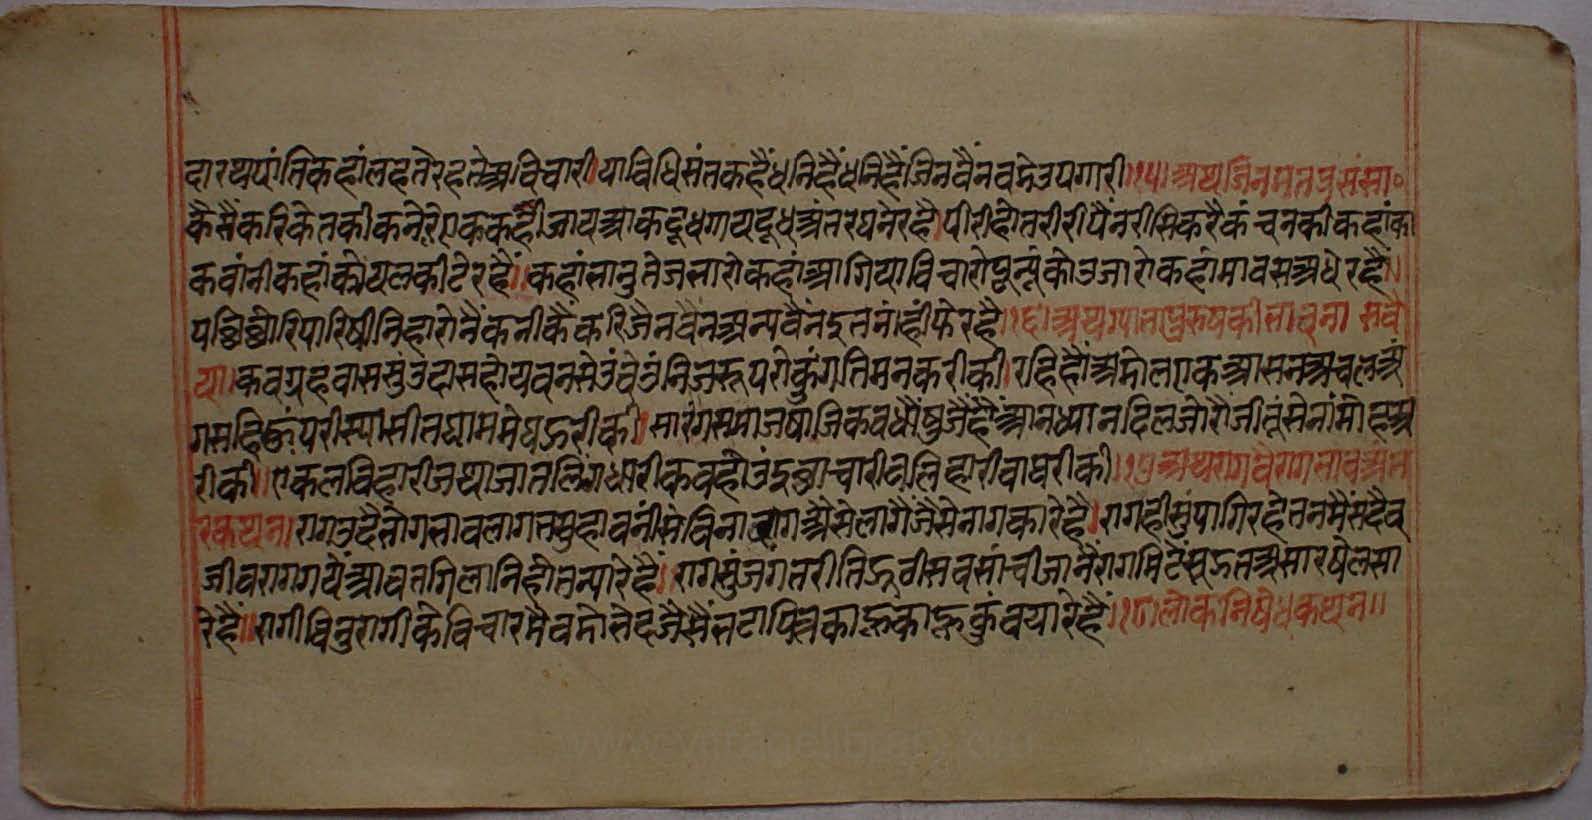 दारथपांतिकहांलहतेरहतेअविचारी।याविधिसंतकहैंधनिहैंधनिहैंजिनवैंनवडेउपगारी।१५।अथजिनमतप्रसंसा॰
कैसैंकरिकेतकीकनेरएककहीजायआकदूधगायदूधअंतरघनेरहै।पीरीहोतरीरीपैंनरीसिकरैकंचनकीकहांका
कवांनीकहांकोयलकीटेरहैं।।कहांभानुतेजभारोकहांआगियाविचारोपून्यूंकोउजारोकहांमावसअधेरहै।।
पछिछोरिपारिषीनिहारोनैंकनीकैंकरिजैनवैंनअन्यवैंनइतनांहींफेरहै।१६।अथग्याताप्रुरुषकीभावना सवै
या।कवग्रहवाससुंउदासहोयवनसेउंवेउंनिजरूपरोकुंगतिमनकरीकी।रहिहौंअडोलएकआसनअचलअं
गसहिहुंपरीस्यासीतघाममेघझरीकी।सारंगसमाजषाजिकवधौंषुजैहैंआनध्यानदिलजोरौंजीतूंसेनांमोहअ
रीकी।।एकलविहारीजथाजातलिंगधारीकवहोउंइछाचारीवलिहारीवाघरीकी।१७अथरागवैरागभावअंत
रकथन।रागउदैभोगभावलागतसुहावनेंसेविनारागअैसेलागैंजैसेनागकारेहैं।रागहीसुंपागिरहेतनमैंसदैव
जीवरागगयैंआवतगिलानिहोतन्यारेहैं।रागसुंजगतरीतिझूठीसवसांचीजानैंरागमिटैंसूझतअसारषेलसा
रेहैं।।रागीविनुरागीकेविचारमैंवडोभेदजैसैंभटापित्तकाहूकाहूकुंवयारेहैं।१८।लोकनिषेधकथन।।